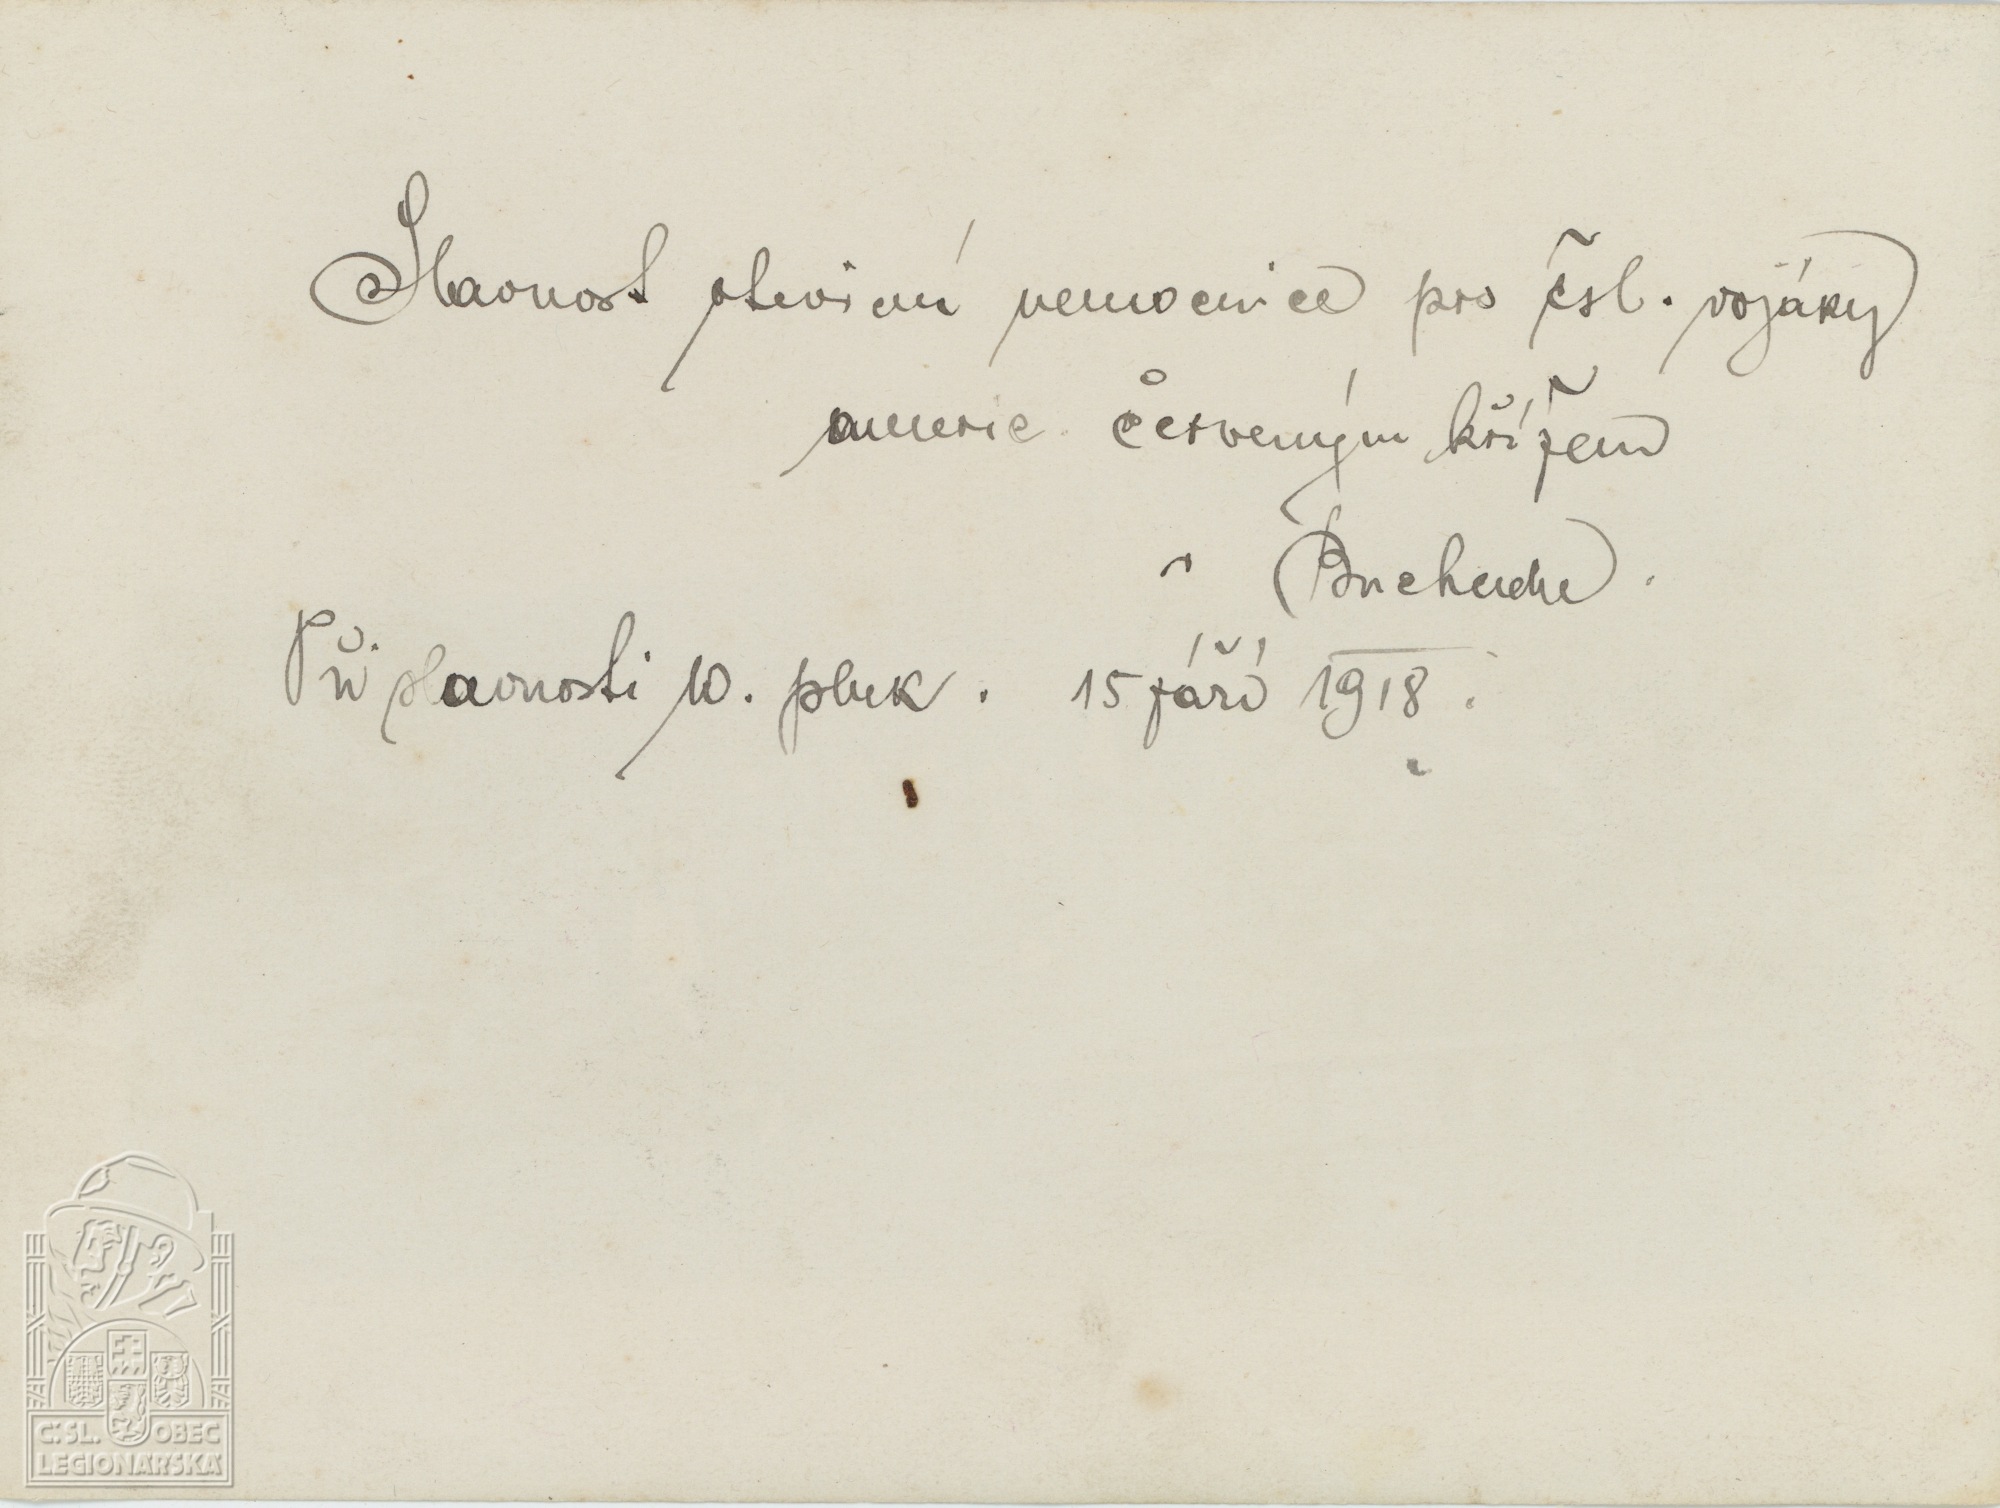 Slavnost otevření nemocnice pro čsl. vojáky
americ. červeným křížem
v Bucheche.
Při slavnosti 10. pluk. 15 září 1918.
Č.SL. OBEC
LEGIONÁŘSKÁ